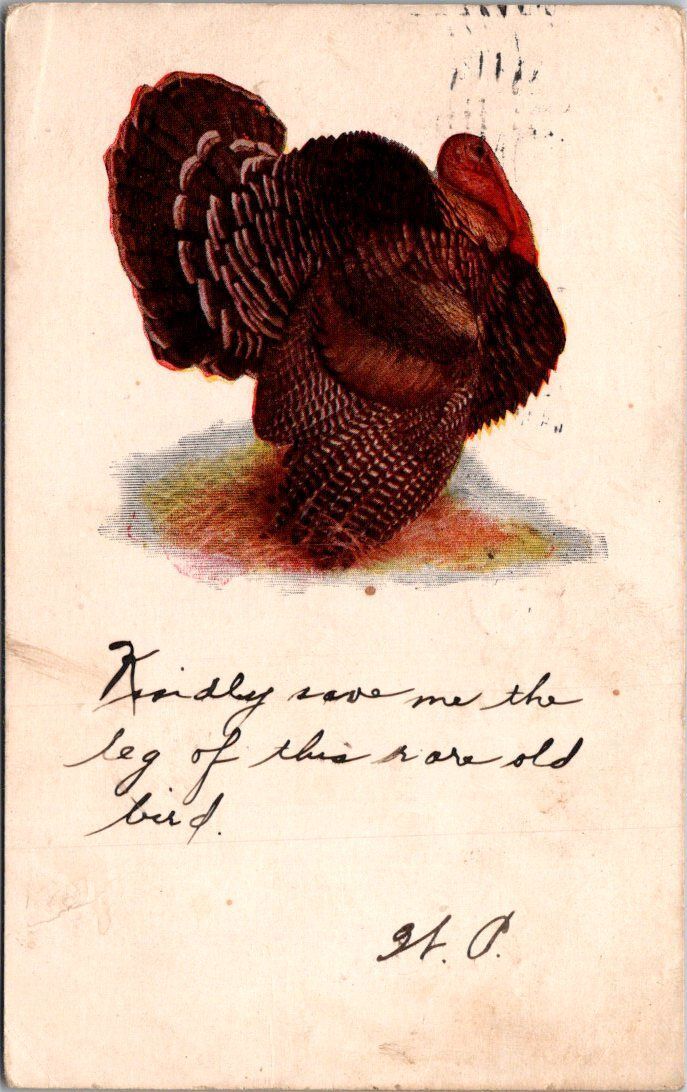 Kindly save me the
leg of this rare old
bird.
H. P.